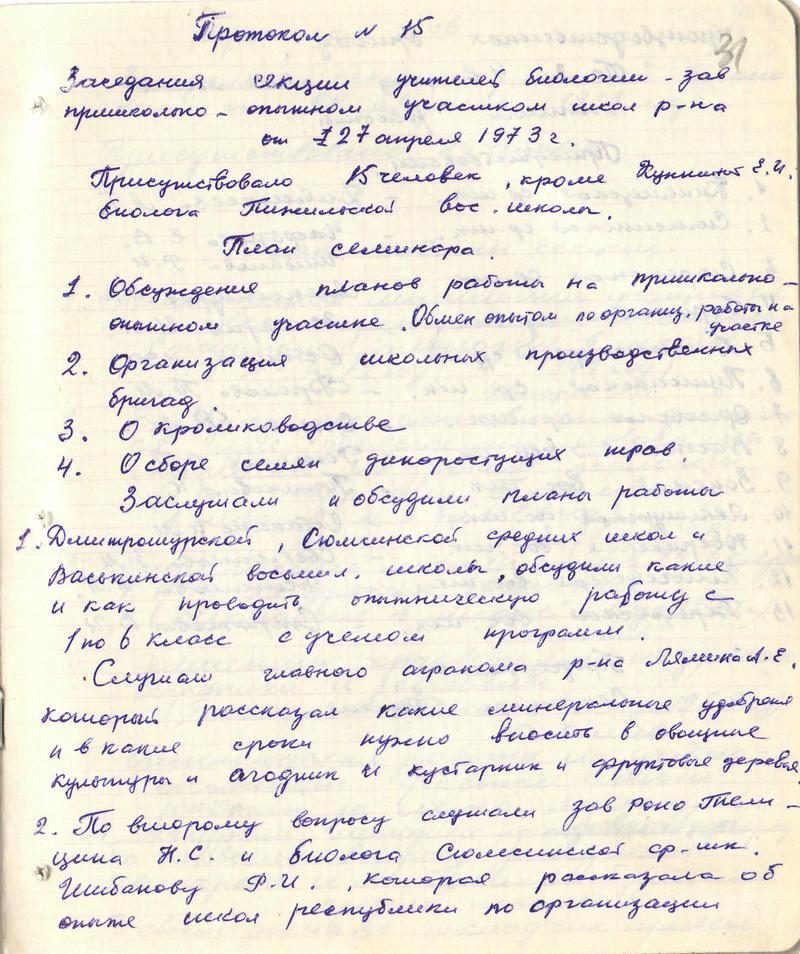 Протокол № 15
31
Заседания секции учителей биологии - зав
пришкольно - опытном участком школ р-на
от 27 апреля 1973 г.
Присутствовало 15 человек, кроме Е.И.
биолога Пижильской вос. школы.
План семинара.
1. Обсуждения планов работы на пришкольно -
опытном участке. Обмен опытом по организ. работы на
участке
2. Организация школьных производственных
бригад.
3. О кролиководстве
4. О сборе семян дикоростущих трав.
Заслушали и обсудили планы работы
1. Дмитрошурской, Сюмсинской средних школ и
Васькинской восьмил. школы, обсудили какие
и как проводить опытническую работу с
1 по 6 класс с учетом программ.
Слушали главного агранома р-на Лямина А.Е.
который рассказал какие минеральные удобрения
и в какие сроки нужно вносить в овощные
культуры и ягодник и кустарник и фруктовые деревья.
2. По второму вопросу слушали зав роно Тели -
цина Н.С. и биолога Сюмсинской ср-шк.
Шибанову Ф.И., которая рассказала об
опыте школ республики по организации